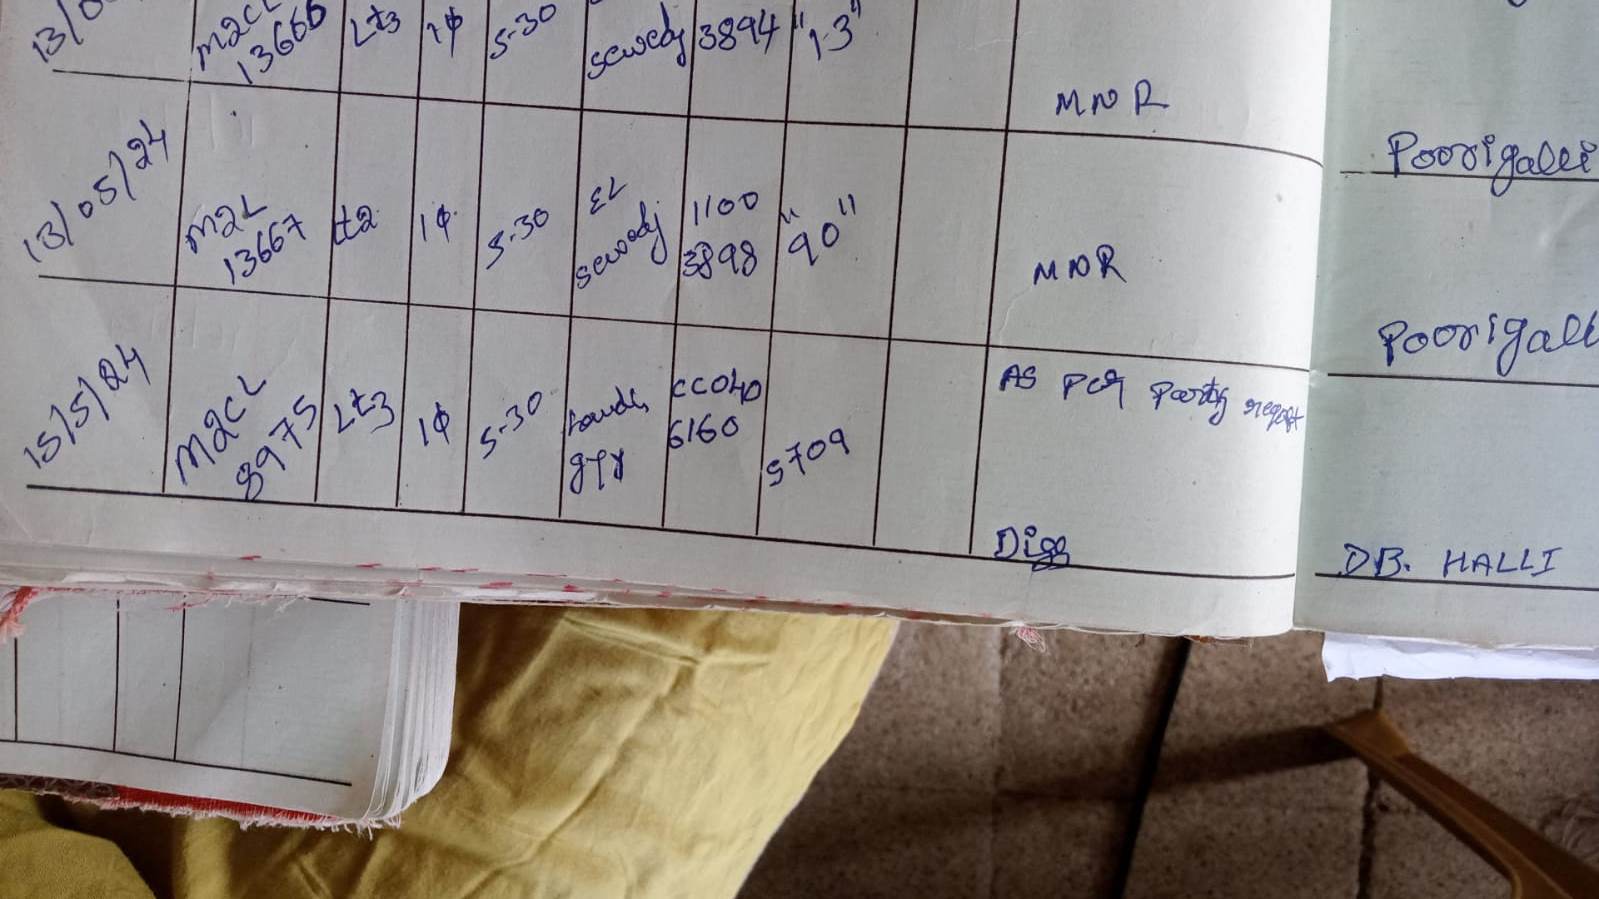 M2CL Lt3 1φ 5-30 3894 "1.3"
13666 sewedy
MNR
Poorigalli
13/05/24 M2L Lt2 1φ 5-30 EL 1100 "90"
13667 sewody 3898
MNR
Poorigall
15/5/24 M2CL Lt3 1φ 5-30 CC040 5709 As per Party report
8975 gyr 6160
DB. HALLI